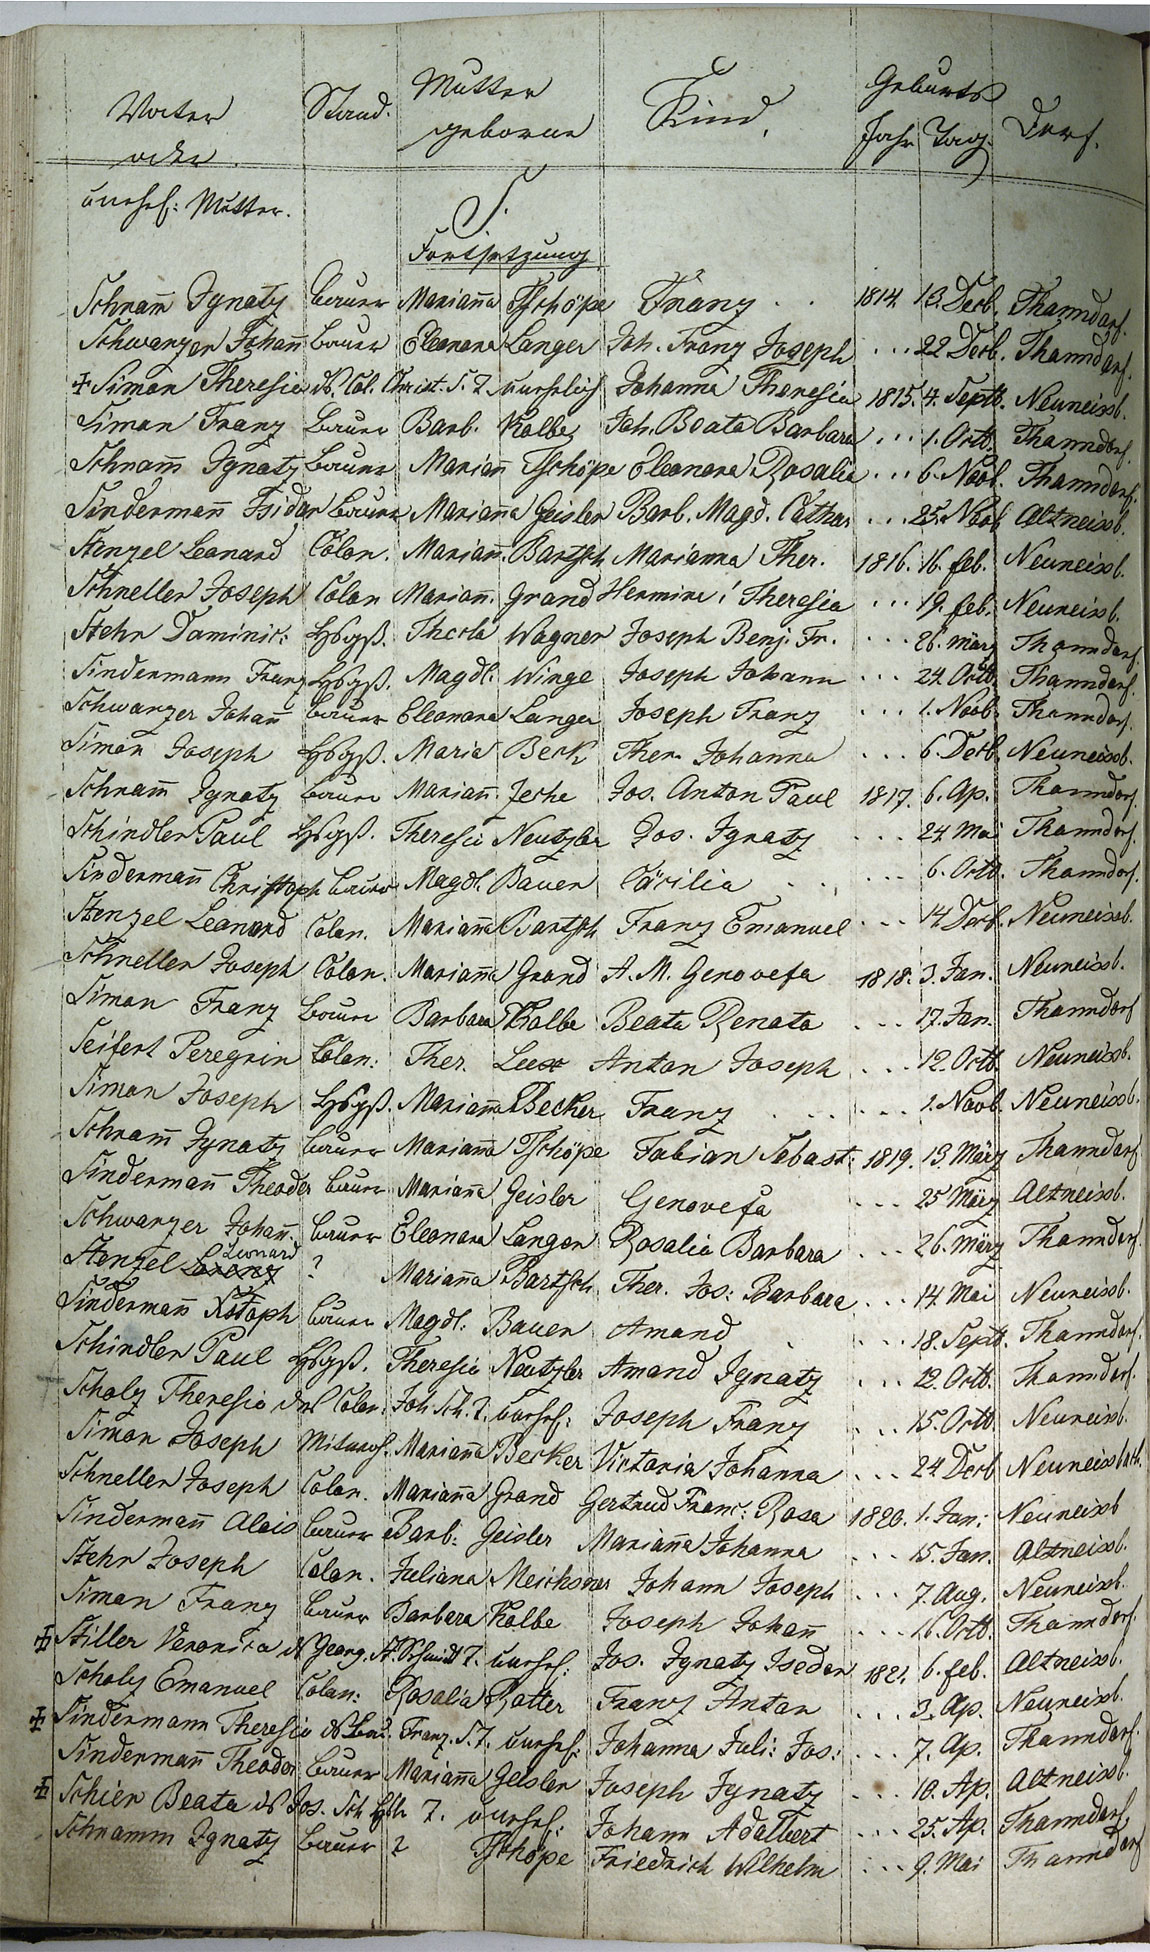 Vater Stand. Mutter Kind. Geburts Dorf.
oder geborne Jahr Tag.
unehel: Mutter.
S.
Fortsetzung
Schram̄ Ignatz Bauer Marian̄a Tschöpe Franz . . 1814. 13. Decb. Thanndorf.
Schwarzer Johan̄ Bauer Eleonora Langer Joh. Franz Joseph ... 22 Decb. Thanndorf.
Simon Theresia ds. Col. Christ. S. T. unehelich Johanna Theresia 1815. 4. Septb. Neuneissb.
Simon Franz Bauer Barb. Kolbe Joh. Beata Barbara ... 1. Octb. Thanndorf.
Schram̄ Ignatz Bauer Marian̄ Tschöpe Eleonora Rosalia ... 6. Novb. Thanndorf.
Sinderman̄ Isidor Bauer Mariana Geisler Barb. Magd. Cathar. ... 25. Novb. Altneissb.
Stenzel Leonard Colon. Marian̄. Bartsch Marianna Ther. 1816. 16. feb. Neuneissb.
Schneller Joseph Colon Marian̄. Grand Hermine! Theresia ... 19. feb. Neuneissb.
Stehr Dominic: Hsgß. Thecla Wagner Joseph Benj. Fr. ... 26. März Thanndorf.
Sindermann Franz Hsgß. Magdl. Winge Joseph Johann ... 24. Octb. Thanndorf.
Schwarzer Johan̄ Bauer Eleonora Langer Joseph Franz ... 1. Novb. Thanndorf.
Simon Joseph Hsgß. Maria Beck Ther. Johanna ... 6. Decb. Neuneissb.
Schram̄ Ignatz Bauer Marian̄. Jesche Jos. Anton Paul 1817. 6. Ap. Thanndorf.
Schindler Paul Hsgß. Theresia Neutzler Jos. Ignatz ... 24 Mai Thanndorf.
Sinderman̄ Christoph Bauer Magdl. Bauer Cäcilia ... 6. Octb. Thanndorf.
Stenzel Leonard Colon. Marian̄a Bartsch Franz Emanuel ... 14. Decb. Neuneissb.
Schneller Joseph Colon. Marian̄a Grand A. M. Genovefa 1818. 3. Jan. Neuneissb.
Simon Franz Bauer Barbara Kolbe Beata Renata ... 17. Jan. Thanndorf
Seifert Peregrin Colon: Ther. Anton Joseph ... 12. Octb. Neuneissb.
Simon Joseph Hsgß. Marian̄a Becker Franz ... 1. Novb. Neuneissb.
Schram̄ Ignatz Bauer Marian̄a Tschöpe Fabian Sebast: 1819. 13. März Thanndorf
Sinderman̄ Theodor Bauer Marian̄a Geisler Genovefa ... 25 März Altneissb.
Schwarzer Johan̄. Bauer Eleonora Langer Rosalia Barbara ... 26. März Thanndorf.
Stenzel Lorenz Leonard ? Marian̄a Bartsch Ther. Jos: Barbara ... 14. Mai Neuneissb.
Sinderman̄ Xstoph Bauer Magdl: Bauer Amand ... 18. Septb. Thanndorf.
Schindler Paul Hsgß. Theresia Neutzler Amand Ignatz ... 12. Octb. Thanndorf.
Scholz Theresia des Colon. Joh Sch. T. unehel: Joseph Franz ... 15. Octb Neuneissb.
Simon Joseph Marian̄a Becker Victoria Johanna ... 24 Decb Neuneissbach.
Schneller Joseph Colon. Marian̄a Grand Gertrud Franc: Rosa 1820. 1. Jan: Neuneissb
Sinderman̄ Alois Bauer Barb: Geisler Marian̄a Johanna ... 15. Jan. Altneissb.
Stehr Joseph Colon. Juliana Meichsner Johann Joseph ... 7. Aug. Neuneissb.
Simon Franz Bauer Barbara Kolbe Joseph Johan̄ ... 16. Octb. Thanndorf.
Stiller Veronica ds Georg. St. Schmidt T. unehel: Jos. Ignatz Isedor 1821. 6. feb. Altneissb.
Scholz Emanuel Colon: Rosalia Rotter Franz Anton ... 3. Ap. Neuneissb.
Sindermann Theresia ds Bau. Franz. S. T. unehel. Johanna Juli: Jos: ... 7. Ap. Thanndorf.
Sinderman̄ Theodor Bauer Marian̄a Geisler Joseph Ignatz ... 18. Ap. Altneissb.
Schier Beata ds Jos. Sch Hsl. T. unehel: Johann Adalbert ... 25. Ap. Thanndorf.
Schramm Ignatz Bauer ? Tschöpe Friedrich Wilhelm ... 9. Mai Thanndorf